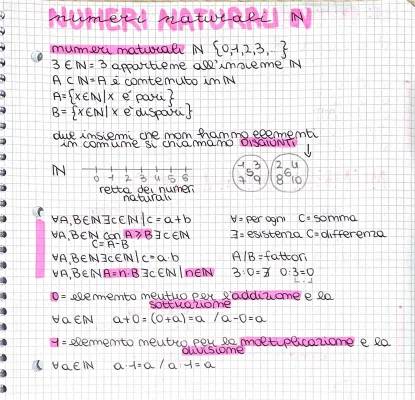 NUMERI NATURALI ℕ
numeri naturali ℕ {0,1,2,3,...}
3∈ℕ = 3 appartiene all'insieme ℕ
A⊂ℕ = A è contenuto in ℕ
A={x∈ℕ/x è pari}
B={x∈ℕ/x è dispari}
due insiemi che non hanno elementi
in comune si chiamano DISGIUNTI
ℕ 0 1 2 3 4 5 6
retta dei numeri
naturali
1 3 5 7 9
2 4 6 8 10
∀A,B∈ℕ∃c∈ℕ/c=a+b ∀=per ogni C=somma
∀A,B∈ℕ con A≥B∃c∈ℕ ∃=esistenza C=differenza
C=A-B
∀A,B∈ℕ∃c∈ℕ/c=a·b A/B=fattori
∀A,B∈ℕA=n·B∃c∈ℕ/n∈ℕ 3:0=∄ 0:3=0
0=elemento neutro per l'addizione e la
sottrazione
∀a∈ℕ a+0=(0+a)=a / a-0=a
1=elemento neutro per la moltiplicazione e la
divisione
∀a∈ℕ a·1=a / a·1=a